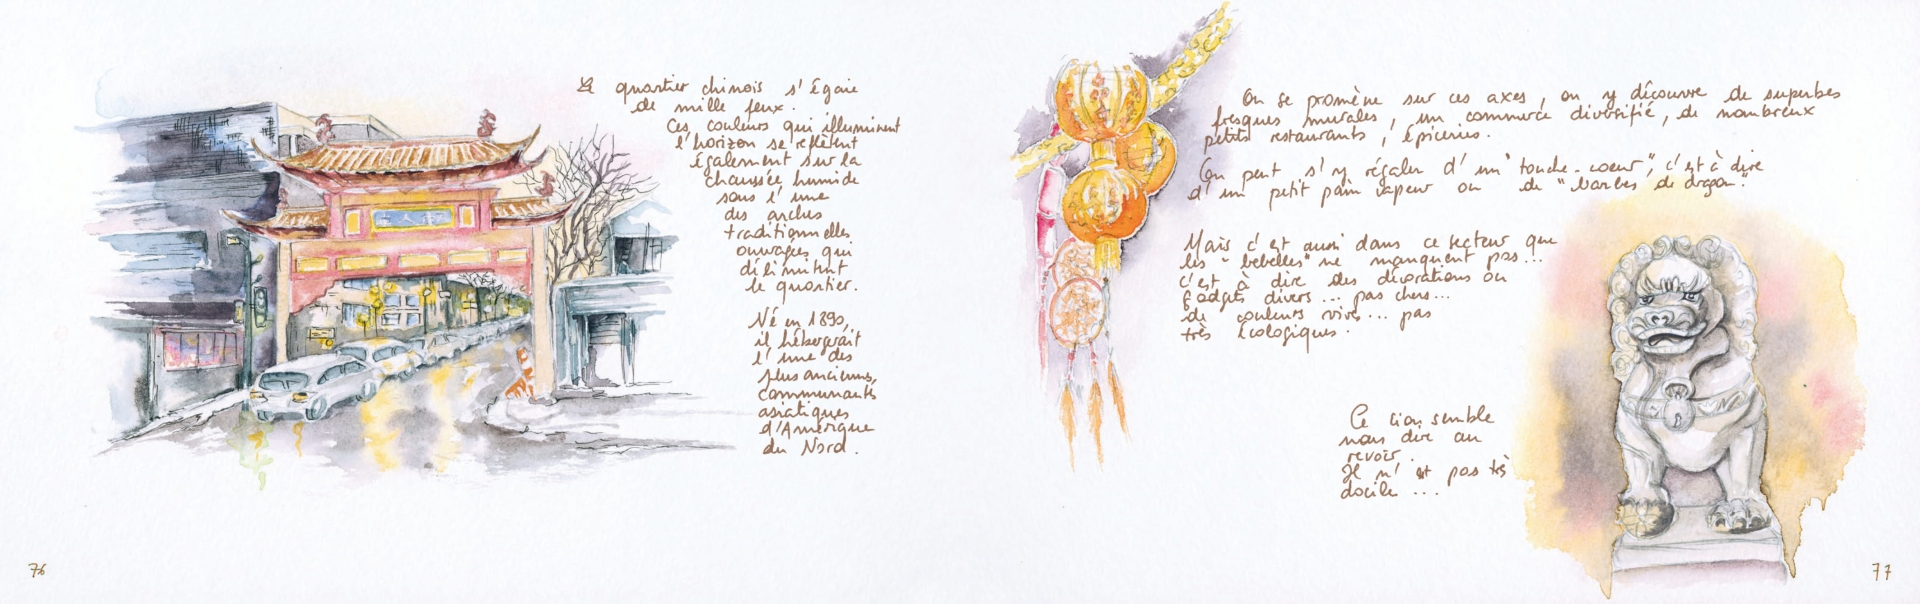 Le quartier chinois s'égaie
de mille feux.
Ces couleurs qui illuminent
l'horizon se reflètent
également sur la
chaussée humide
sous l'une
des arches
traditionnelles
ouvragées qui
délimitent
le quartier.
Né en 1890,
il hébergerait
l'une des
plus anciennes,
communautés
asiatiques
d'Amérique
du Nord.
76
On se promène sur ces axes, on y découvre de superbes
fresques murales, un commerce diversifié, de nombreux
petits restaurants, épiceries.
On peut s'y régaler d'un "touche-coeur", c'est à dire
d'un petit pain vapeur ou de "barbes de dragon".
Mais c'est aussi dans ce secteur que
les "bebelles" ne manquent pas...
c'est à dire des décorations ou
gadgets divers... pas chers...
de couleurs vives... pas
très écologiques.
Ce lion semble
nous dire au
revoir.
Il n'est pas très
docile...
77